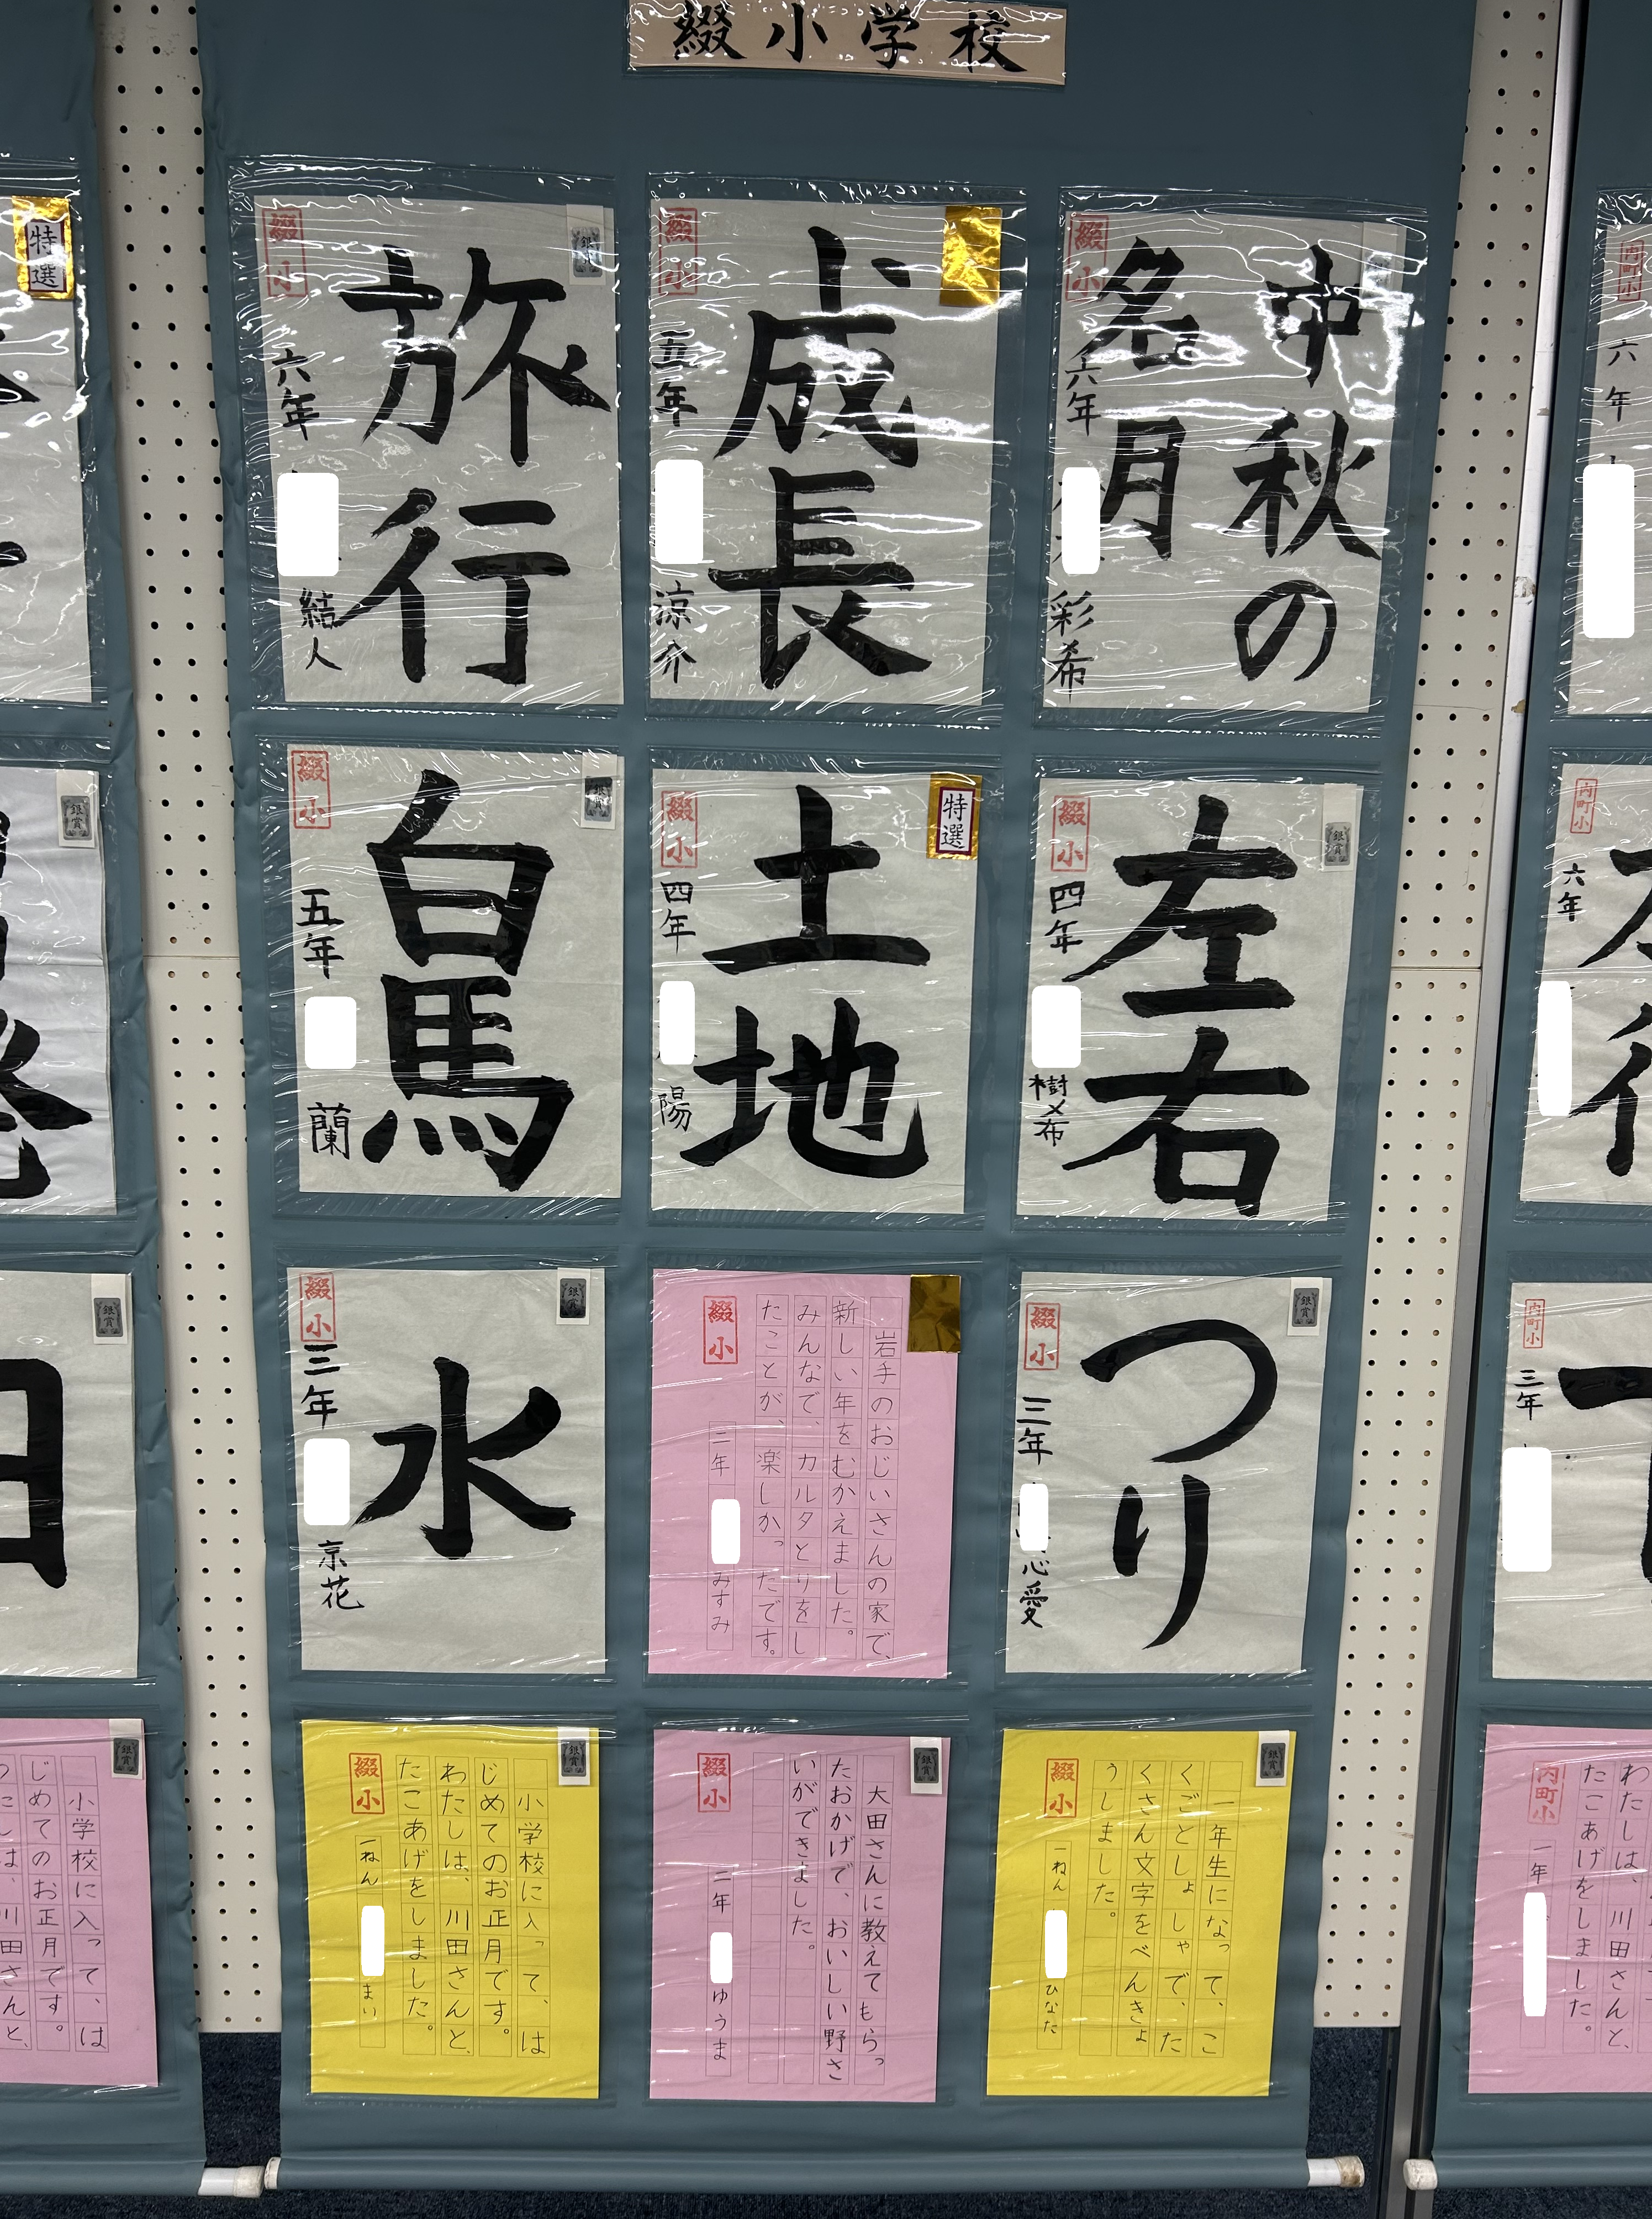 綴小学校
特選
中秋の
名月
綴小
六年
彩希
成長
綴小
五年
涼介
旅行
銀
綴小
六年
結人
左右
銀賞
綴小
四年
樹希
土地
特選
綴小
四年
陽
白馬
銀賞
綴小
五年
蘭
つり
銀賞
綴小
三年
心愛
岩手のおじいさんの家で、
新しい年をむかえました。
みんなで、カルタとりをし
たことが、楽しかったです。
綴小
二年
みすみ
水
銀賞
綴小
三年
京花
一年生になって、こ
くごとしょしゃで、た
くさん文字をべんきょ
うしました。
銀賞
綴小
一ねん
ひなた
大田さんに教えてもらっ
たおかげで、おいしい野さ
いができました。
銀賞
綴小
二年
ゆうま
小学校に入って、は
じめてのお正月です。
わたしは、川田さんと、
たこあげをしました。
銀賞
綴小
一ねん
まい
銀賞
銀賞
日
銀賞
小学校に入って、は
じめてのお正月です。
内町小
六年
内町小
六年
内町小
三年
わたしは、川田さんと、
たこあげをしました。
内町小
一年